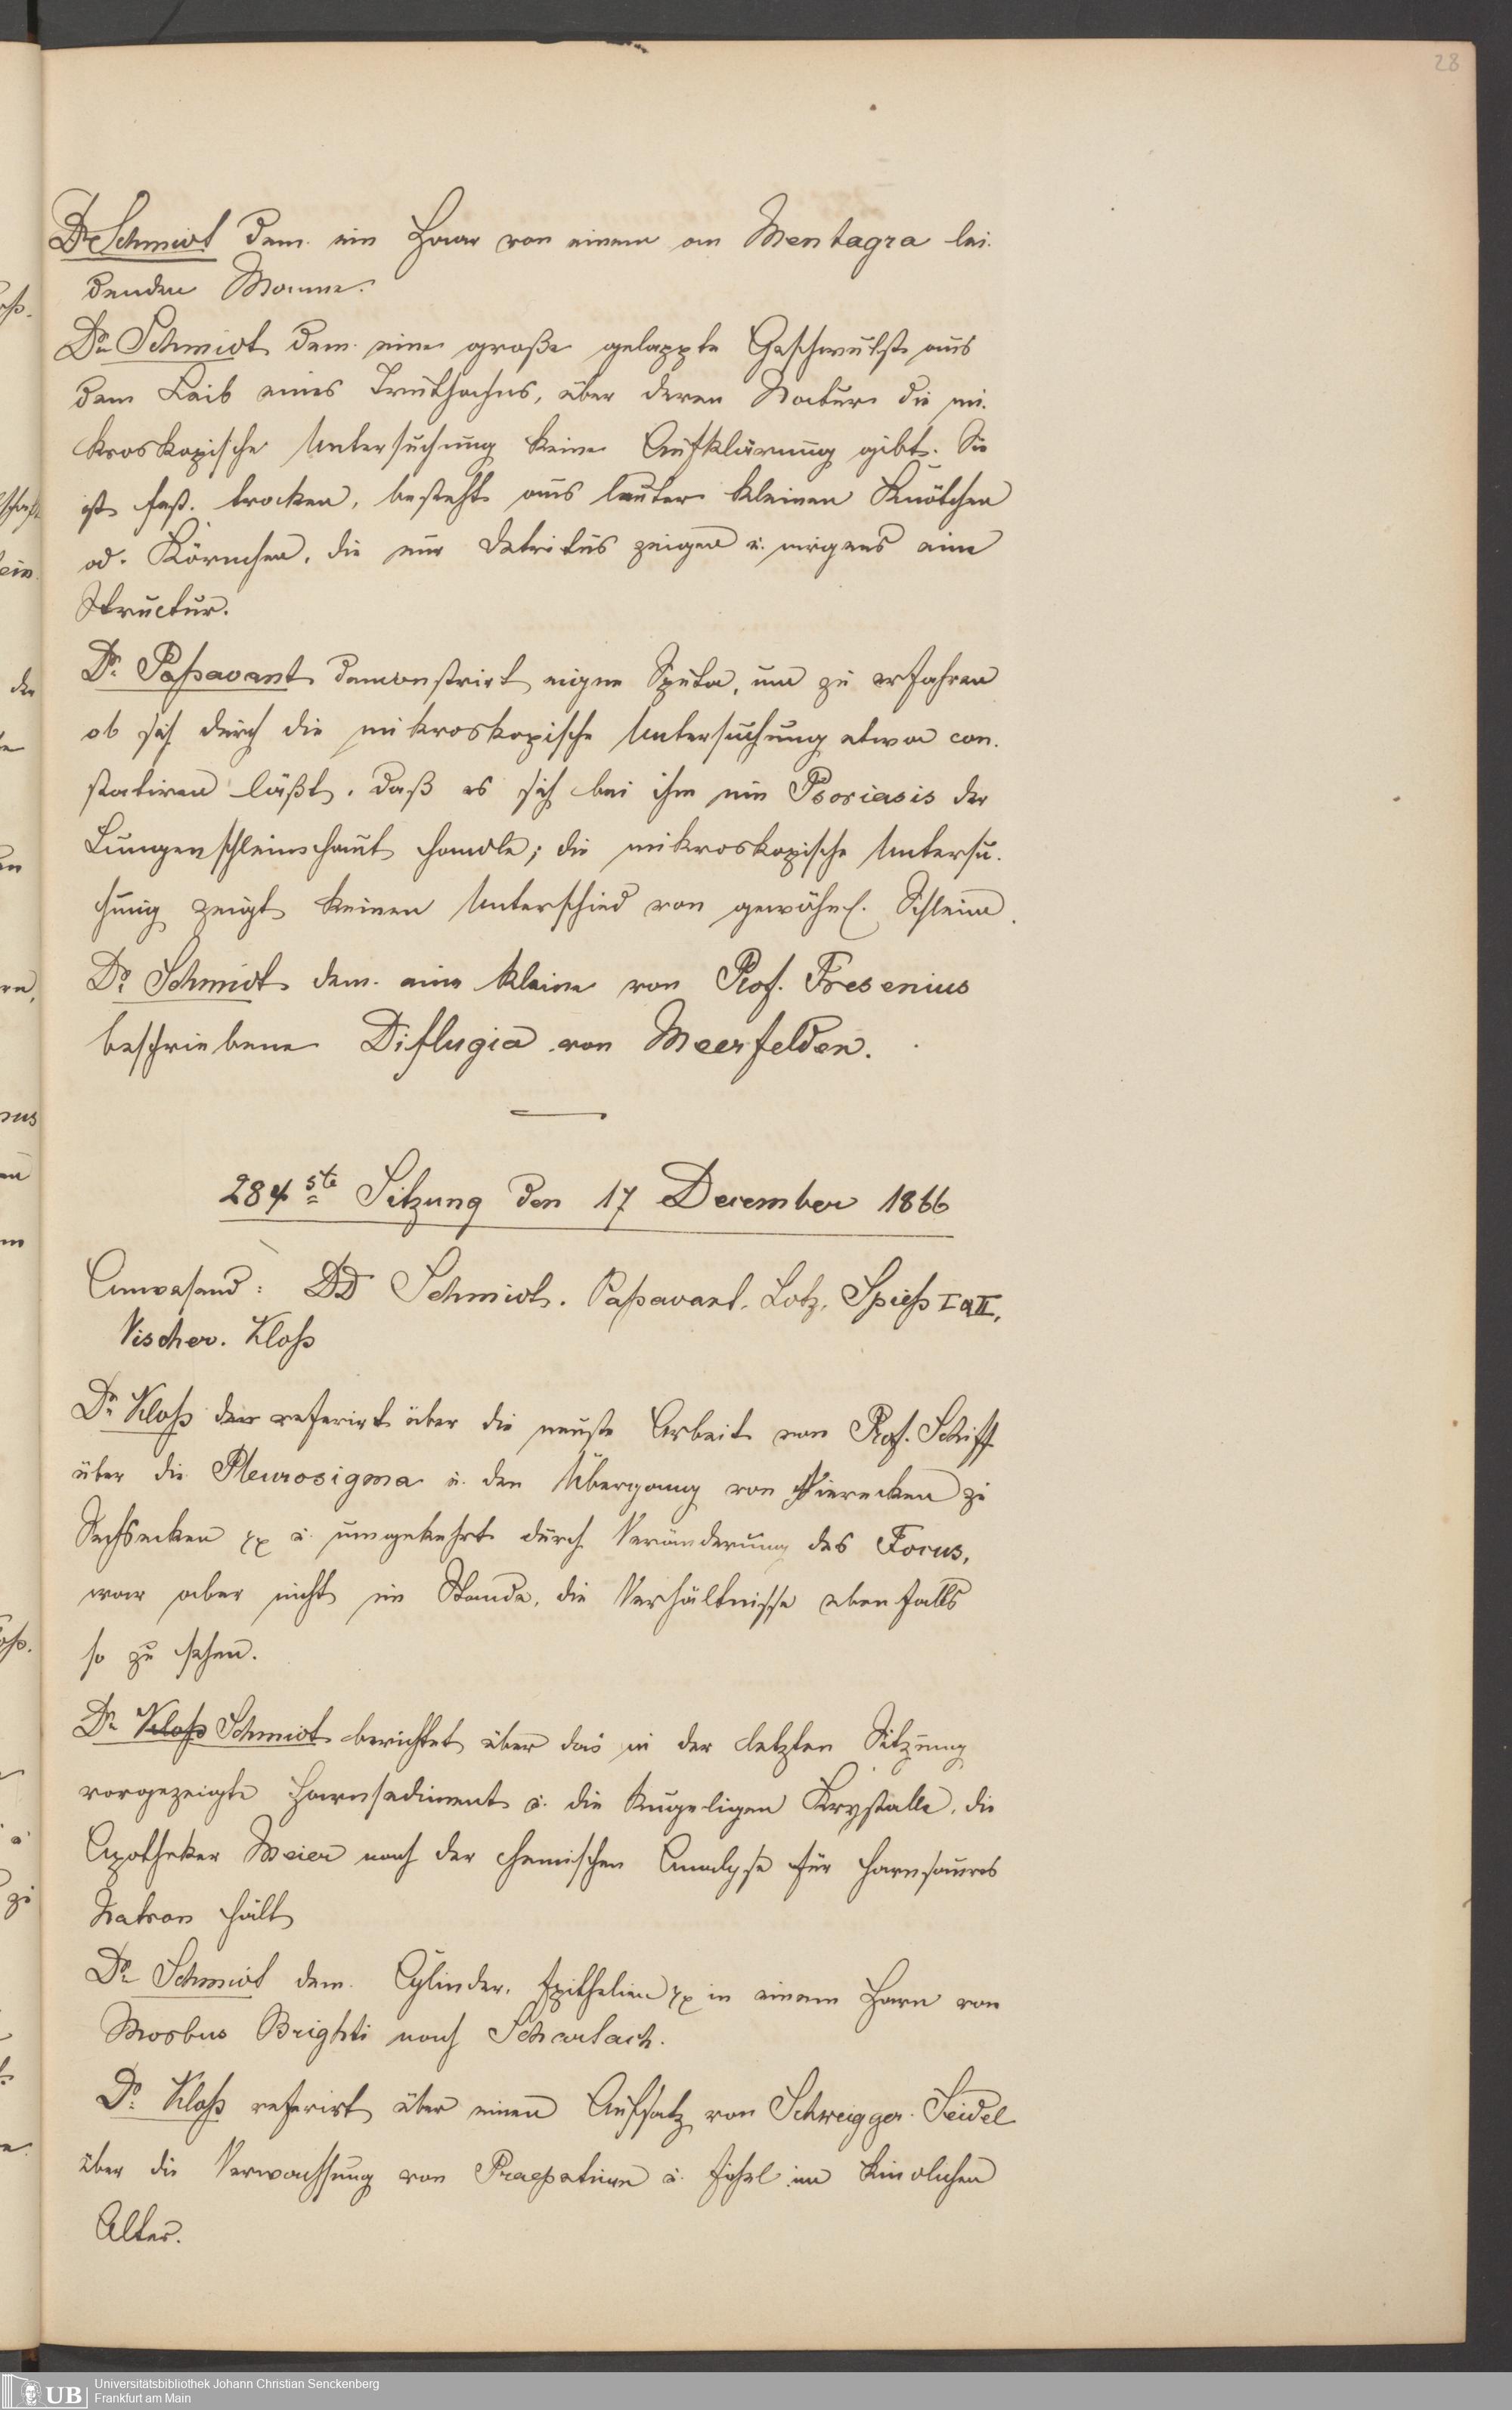 28
Dr Schmidt dem. ein Haar von einem an Mentagra lei-
denden Manne.
Dr. Schmidt dem. eine große gelappte Geschwulst aus
dem Leib eines Truthahns, über deren Natur die mi-
kroskopische Untersuchung keine Aufklärung gibt. Sie
ist fest, trocken, besteht aus lauter kleinen Knötchen
od. Körnchen, die nur Detritus zeigen u. nirgens eine
Structur.
Dr. Paßavant demonstrirt eigne Sputa, um zu erfahren
ob sich durch die mikroskopische Untersuchung etwa con-
statiren läßt, daß es sich bei ihm um Psoriasis der
Lungenschleimhaut handle; die mikroskopische Untersu-
chung zeigt keinen Unterschied von gewöhnl. Schleim.
Dr. Schmidt dem. eine kleine von Prof. Fresenius
beschriebene Diflugia von Meerfelden.
284ste Sitzung den 17 December 1866
Anwesend: DD Schmidt. Paßavant. Lotz. Spieß I & II,
Vischer. Kloß
Dr. Kloß referirt über die neuste Arbeit von Prof. Schiff
über die Pleurosigma u. den Übergang von Vierecken zu
Sechsecken u. umgekehrt durch Veränderung des Focus,
war aber nicht im Stande, die Verhältnisse ebenfalls
so zu sehen.
Dr. Kloß Schmidt berichtet über das in der letzten Sitzung
vorgezeigte Harnsediment u. die kugeligen Krystalle, die
Apotheker Meier nach der chemischen Analyse für harnsaures
Natron hält
Dr. Schmidt dem. Cylinder, Epithelien in einem Harn von
Morbus Brighti nach Scharlach.
Dr. Kloß referirt über einen Aufsatz von Schweigger-Seidel
über die Verwachsung von Praeputium u. Eichel im kindlichen
Alter.
UB
Universitätsbibliothek Johann Christian Senckenberg
Frankfurt am Main